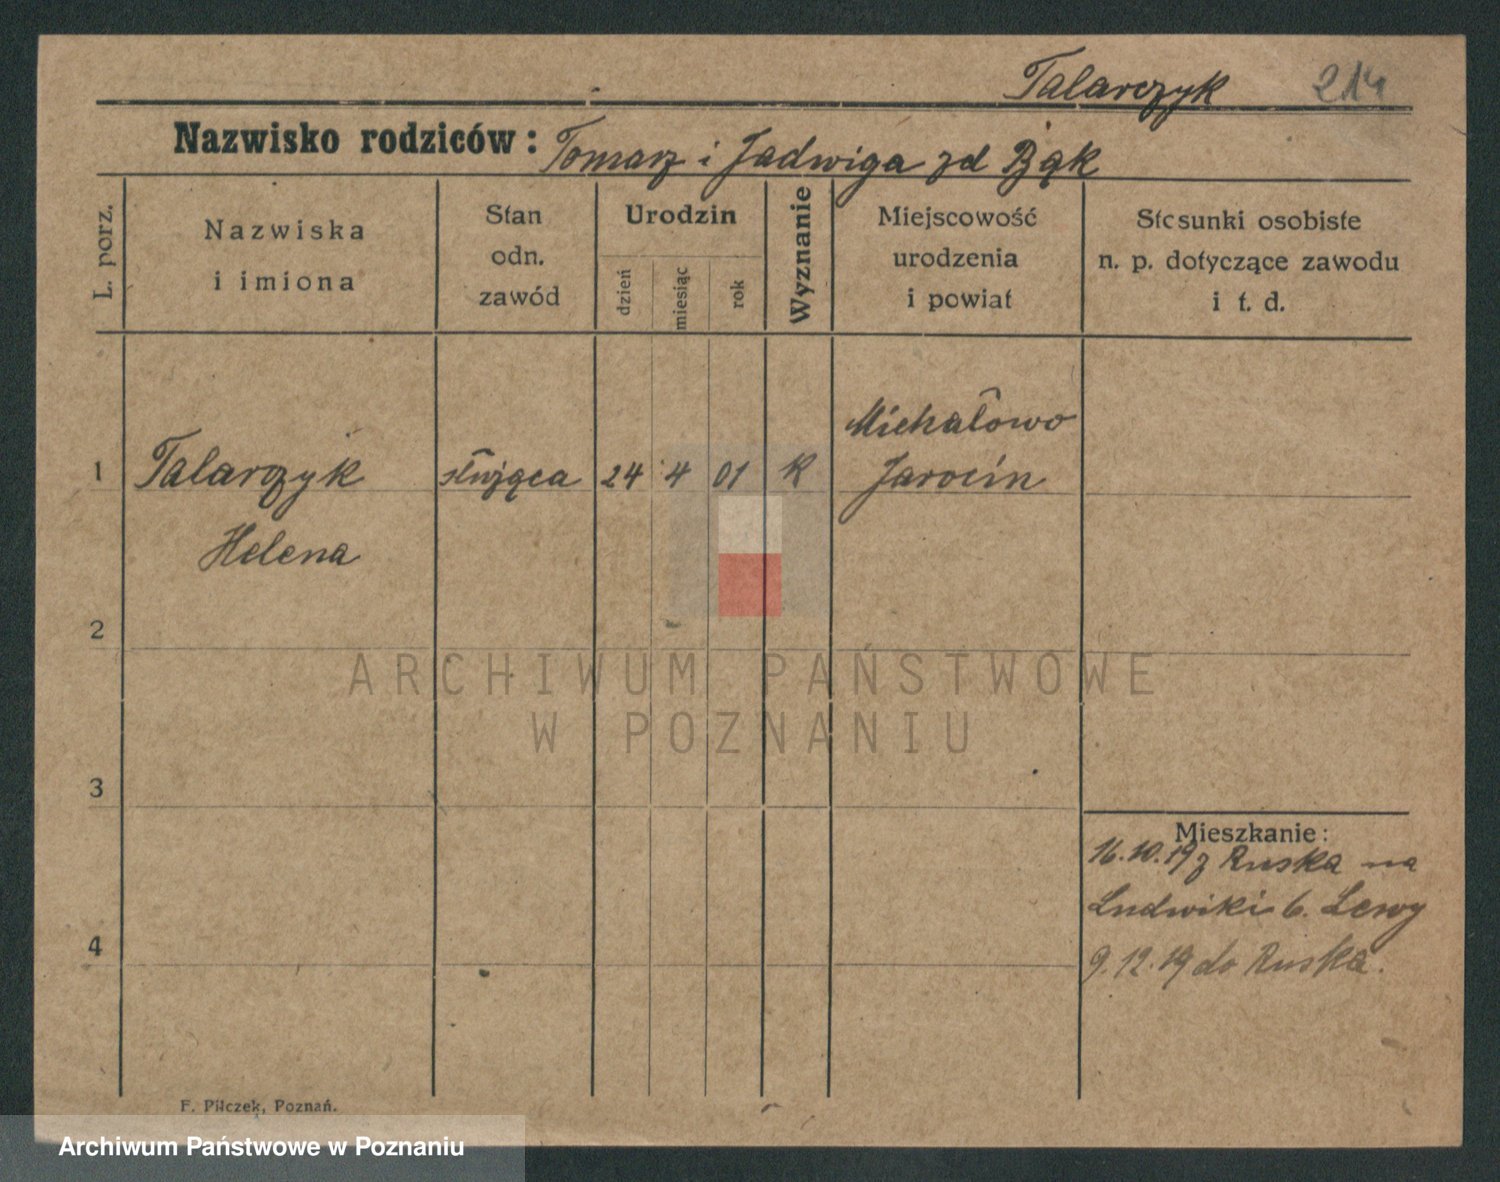 Talarczyk 214
Nazwisko rodziców: Tomasz i Jadwiga zd Bąk
L. porz.
Nazwiska
i imiona
Stan
odn.
zawód
Urodzin
dzień
miesiąc
rok
Wyznanie
Miejscowość
urodzenia
i powiat
Stosunki osobiste
n. p. dotyczące zawodu
i t. d.
1 Talarczyk służąca 24 4 01 K Michałowo
Jarocin
Helena
2
3
4
Mieszkanie:
16.10.19 z Ruska na
Ludwiki b. Lewy
9.12.19 do Ruska.
ARCHIWUM PAŃSTWOWE
W POZNANIU
F. Pilczek, Poznań.
Archiwum Państwowe w Poznaniu